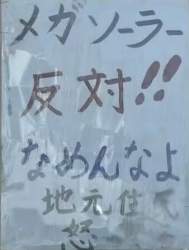 メガソーラー
反対!!
なめんなよ
地元住民
怒